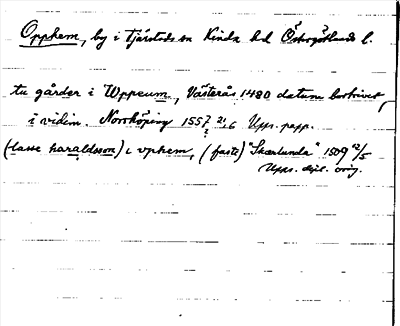 Opphem, by i Tjärstads sn Kinda hd Östergötlands l.
tu gårder i Wppeum, Västerås 1480 datum bortrivet,
i vidim. Norrköping 1557 21/6 Upps. papp.
(lasse haraldsson) i vphem, (faste) "Skærlunda" 1509 12/5
Upps. dipl. orig.